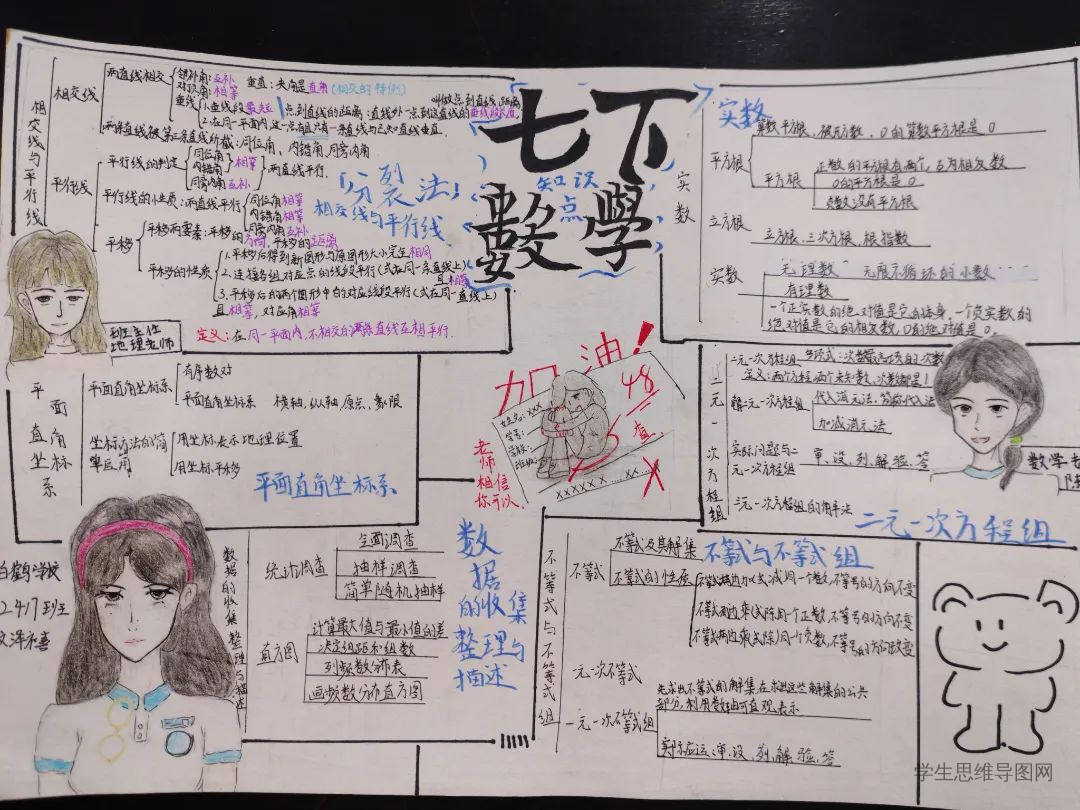 七下
數學
知识
点
相交线与平行线
相交线
两直线相交
邻补角:互补
对顶角:相等
垂直:夹角是直角(相交的特例)
垂线
1.垂线段最短
点到直线的距离:直线外一点到这直线的垂线段长度,
叫做点到直线距离
2.在同一平面内,过一点有且只有一条直线与已知直线垂直.
两条直线被第三条直线所截:同位角、内错角、同旁内角
平行线
平行线的判定
同位角
内错角
相等
同旁内角互补
两直线平行.
平行线的性质:两直线平行
同位角相等
内错角相等
同旁内角互补
平移
平移两要素:平移的方向,平移的距离
平移的性质
1.平移后得到新图形与原图形大小完全相同
2.连接各组对应点的线段平行(或在同一条直线上)
且相等
3.平移后的两个图形中的对应线段平行(或在同一直线上)
且相等,对应角相等
定义:在同一平面内,不相交的两条直线互相平行.
「分裂法」
相交线与平行线
班主任
地理老师
实数
实数
平方根
算数平方根,被开方数,0的算数平方根是0
平方根
正数的平方根有两个,互为相反数
0的平方根是0
负数没有平方根
立方根
立方根,三次方根,根指数
实数
无理数 无限不循环的小数
有理数
一个正实数的绝对值是它的本身,一个负实数的
绝对值是它的相反数,0的绝对值是0。
平面直角坐标系
平面直角坐标系
有序数对
平面直角坐标系 横轴,纵轴,原点,象限
坐标方法的简
单应用
用坐标表示地理位置
用坐标平移
平面直角坐标系
加油!
48
老师
相信
你可以.
姓名:xxx
学号:
学校:
班级:
二元一次方程组
二元一次方程组
定义:两个方程,两个未知数,次数都是1
解二元一次方程组
代入消元法,
加减消元法
实际问题与二
元一次方程组
审、设、列、解、验、答
三元一次方程组的解法
二元一次方程组
数学老
数据的收集整理与描述
统计调查
全面调查
抽样调查
简单随机抽样
直方图
计算最大值与最小值的差
决定组距和组数
列频数分布表
画频数分布直方图
数
据
的收集
整理与
描述
白鹤学校
2417班
不等式与不等式组
不等式
不等式及其解集
不等式的性质
不等式两边加(或减)同一个数,不等号的方向不变
不等式两边乘(或除)同一个正数,不等号的方向不变
不等式两边乘(或除)同一个负数,不等号的方向改变
一元一次不等式
一元一次不等式组
先求出不等式的解集,在求出这些解集的公共
部分,利用数轴可直观表示
实际应运:审、设、列、解、验、答
不等式与不等式组
学生思维导图网